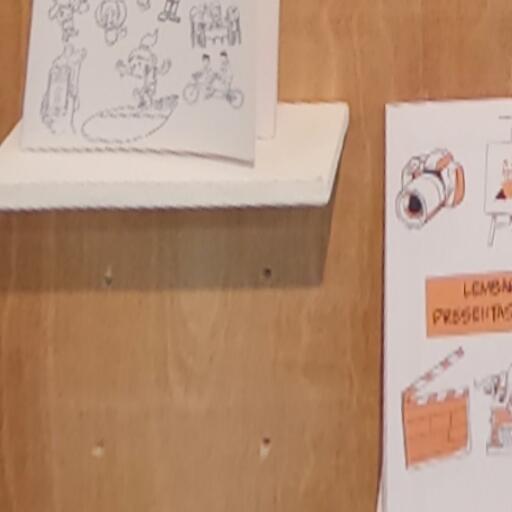 LEMBA
PRESENTAS